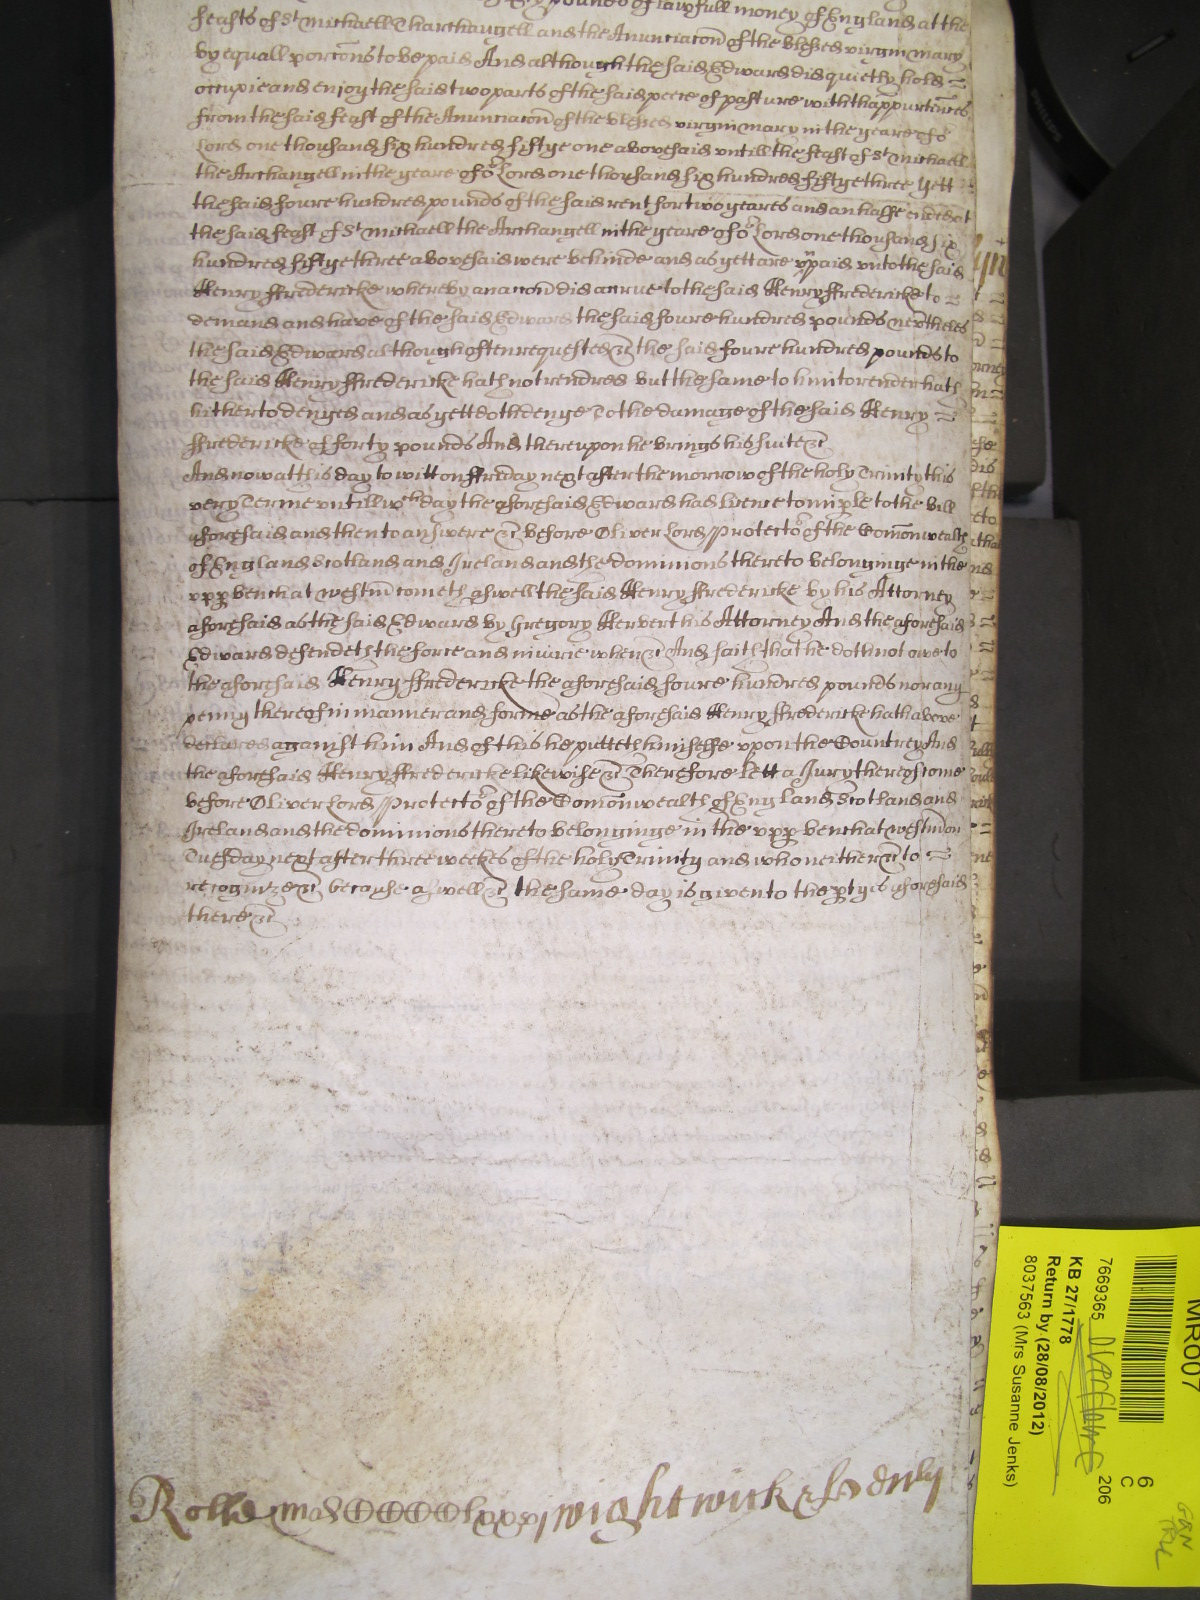 pounds of lawfull money of England at the
feasts of St Michaell Tharchangell and the Anunciacon of the blessed virgin mary
by equall porcons to be paid And although the said Edward did quietly hold
occupie and enjoy the said two parts of the said peece of pasture with thappurtences
from the said feast of the Anunciacon of the blessed virgin mary in the yeare of or
Lord one thousand six hundred fiftye one abovesaid untill the feast of St Michaell
the Archangell in the yeare of or Lord one thousand six hundred fiftye three yett
the said foure hundred pounds of the said rent for two yeares and an halfe ended at
the said feast of St Michaell the Archangell in the yeare of or Lord one thousand six
hundred fiftye three abovesaid were behinde and as yett are unpaid unto the said
Henry ffredericke whereby an accon did accrue to the said Henry ffredericke to
demand and have of the said Edward the said foure hundred pounds nevertheles
the said Edward although often requested &c the said foure hundred pounds to
the said Henry ffredericke hath not rendred but the same to him to render hath
hitherto denyed and as yett doth denye To the damage of the said Henry
ffredericke of forty pounds And thereupon he brings his suite &c
And now at this day to witt on ffriday next after the morrow of the holy Trinity this
very Terme untill wch day the aforesaid Edward had licence to imple to the bill
aforesaid and then to answere &c before Oliver Lord Protector of the Comonwealth
of England Scotland and Ireland and the dominions thereto belonginge in the
upp bench at westm cometh aswell the said Henry ffredericke by his Attorney
aforesaid as the said Edward by Gregory Hervert his Attorney And the aforesaid
Edward defendeth the force and iniurie when &c And saith that he doth not owe to
the aforesaid Henry ffredericke the aforesaid foure hundred pounds nor any
penny thereof in manner and forme as the aforesaid Henry ffredericke hath above
declared against him And of this he putteth himselfe upon the Countrey And
the aforesaid Henry ffredericke likewise &c Therefore lett a Jury thereof come
before Oliver Lord Protector of the Comonwealth of England Scotland and
Ireland and the dominions thereto belonginge in the upp bench at westm on
Tuesday next after three weekes of the holy Trinity and who neither &c to
recognize &c because aswell &c the same day is given to the ptyes aforesaid
there &c
wightwick
MR007
6
C
206
7669365
KB 27/1778
Return by (28/08/2012)
8037563 (Mrs Susanne Jenks)